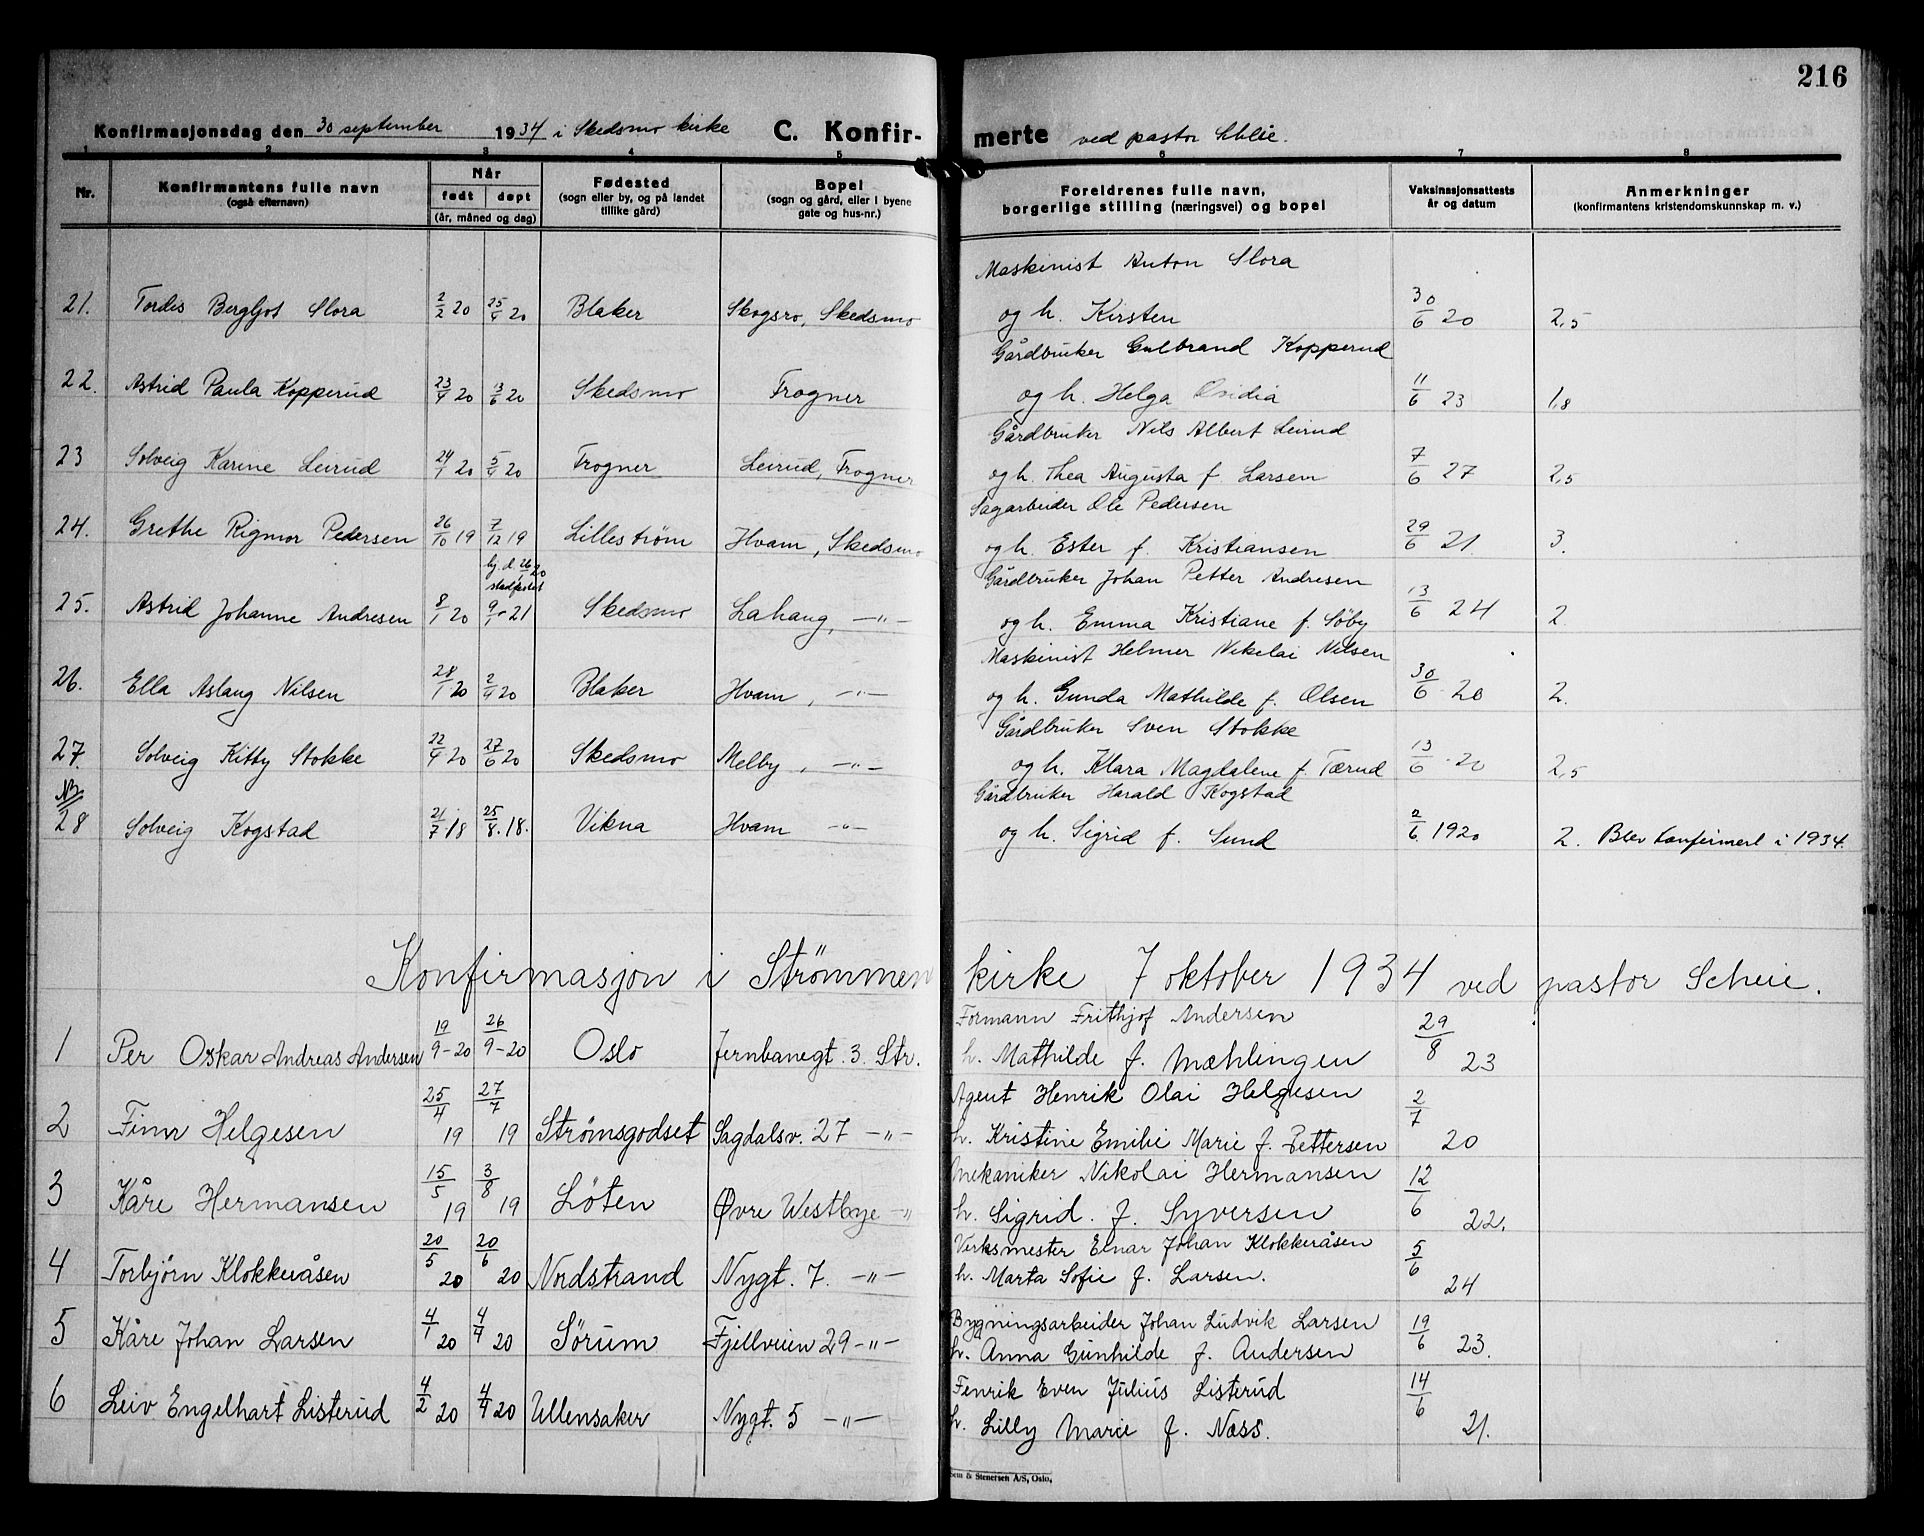 216
Konfirmasjonsdag den 30 september 1934 i Skedsmo kirke C. Konfir- merte ved pastor
1 2 3 4 5 6 7 8
Nr. Konfirmantens fulle navn (også efternavn) Når født døpt (år, måned og dag) Fødested (sogn eller by, og på landet tillike gård) Bopel (sogn og gård, eller i byene gate og hus-nr.) Foreldrenes fulle navn, borgerlige stilling (næringsvei) og bopel Vaksinasjonsattests år og datum Anmerkninger (konfirmantens kristendomskunnskap m. v.)
Maskinist Anton Slora
21. Tordis Bergljot Slora 2/2 20 25/4 20 Blaker Skogsro, Skedsmo og h. Kirsten 30/6 20 2,5
Gårdbruker Gulbrand Kopperud
22. Astrid Paula Kopperud 23/4 20 13/6 20 Skedsmo Frogner og h. Helga Ovidia 11/6 23 1,8
Gårdbruker Nils Albert Leirud
23 Solveig Karine Leirud 24/1 20 5/4 20 Frogner Leirud, Frogner og h. Thea Augusta f. Larsen 7/6 27 2,5
Sagarbeider Ole Pedersen
24. Grethe Rigmor Pedersen 26/10 19 7/12 19 Lillestrøm Hvam, Skedsmo og h. Ester f. Kristiansen 29/6 21. 3.
hj. d. 26/1 20 stadfestet
Gårdbruker Johan Petter Andresen
25. Astrid Johanne Andresen 8/1 20 9/1 - 21 Skedsmo Lahaug, -"- og h. Emma Kristiane f. Søby 13/6 24 2.
Maskinist Helmer Nikolai Nilsen
26. Ella Aslaug Nilsen 28/1 20 2/4 20 Blaker Hvam, -"- og h. Gunda Mathilde f. Olsen 30/6 20 2.
Gårdbruker Sven Stokke
27. Solveig Kitty Stokke 22/4 20 27/6 20 Skedsmo Melby, -"- og h. Klara Magdalene f. Tærud 13/6 20 2,5
NB
Gårdbruker Harald Kogstad
28 Solveig Kogstad 21/7 18 25/8. 18. Vikna Hvam -"- og h. Sigrid f. Sund 2/6. 1920 2. Blev konfirmert i 1934.
Konfirmasjon i Strømmen kirke 7 oktober 1934 ved pastor Scheie.
Formann Frithjof Andersen
1 Per Oskar Andreas Andersen 19/9 - 20 26/9 - 20 Oslo Jernbanegt. 3. Str. h. Mathilde f. Mæhlingen 29/8 23
Agent Henrik Olai Helgesen
2 Finn Helgesen 25/4 19 27/7 19 Strømsgodset Sagdalsv. 27 -"- h. Kristine Emilie Marie f. Pettersen 2/7 20
Mekaniker Nikolai Hermansen
3 Kåre Hermansen 15/5 19 3/8 19 Løten Øvre Westbye -"- h. Sigrid. f. Syversen 12/6 22.
Verksmester Einar Johan Klokkeråsen
4 Torbjørn Klokkeråsen 20/5 20 20/6 20 Nordstrand Nygt. 7. -"- h. Marta Sofie f. Larsen. 5/6 24
Bygningsarbeider Johan Ludvik Larsen
5 Kåre Johan Larsen 4/1 20 4/4 20 Sørum Fjellveien 29 -"- h. Anna Gunhilde f. Andersen 19/6 23.
Fenrik Even Julius Listerud
6 Leiv Engelhart Listerud 4/2 20 4/4 20 Ullensaker Nygt. 5 -"- h. Lilly Marie f. Næss. 14/6 21.
Sem & Stenersen A/S, Oslo.